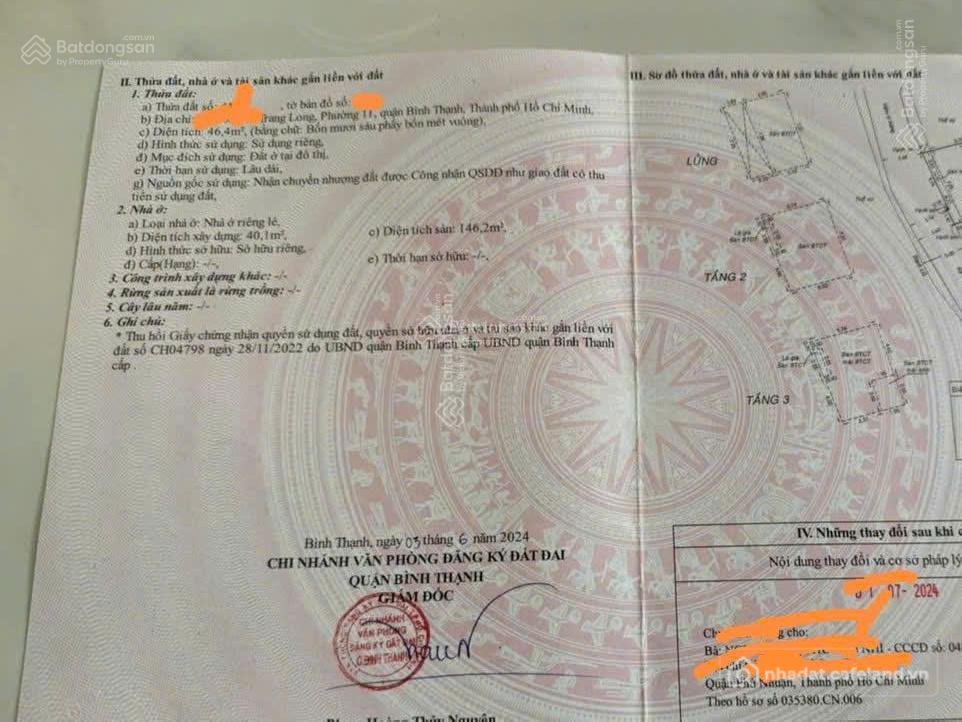 Batdongsan
.com.vn
by PropertyGuru
II. Thửa đất, nhà ở và tài sản khác gắn liền với đất
1. Thửa đất:
a) Thửa đất số: , tờ bản đồ số:
b) Địa chỉ: Trang Long, Phường 11, quận Bình Thạnh, Thành phố Hồ Chí Minh,
c) Diện tích: 46,4m², (bằng chữ: Bốn mươi sáu phẩy bốn mét vuông),
d) Hình thức sử dụng: Sử dụng riêng,
đ) Mục đích sử dụng: Đất ở tại đô thị,
e) Thời hạn sử dụng: Lâu dài,
g) Nguồn gốc sử dụng: Nhận chuyển nhượng đất được Công nhận QSDĐ như giao đất có thu
tiền sử dụng đất,
2. Nhà ở:
a) Loại nhà ở: Nhà ở riêng lẻ,
b) Diện tích xây dựng: 40,1m²,
c) Diện tích sàn: 146,2m²,
d) Hình thức sở hữu: Sở hữu riêng,
đ) Cấp(Hạng): -/-,
e) Thời hạn sở hữu: -/-,
3. Công trình xây dựng khác: -/-
4. Rừng sản xuất là rừng trồng: -/-
5. Cây lâu năm: -/-
6. Ghi chú:
* Thu hồi Giấy chứng nhận quyền sử dụng đất, quyền sở hữu nhà ở và tài sản khác gắn liền với
đất số CH04798 ngày 28/11/2022 do UBND quận Bình Thạnh cấp UBND quận Bình Thạnh
cấp .
Bình Thạnh, ngày 05 tháng 6 năm 2024
CHI NHÁNH VĂN PHÒNG ĐĂNG KÝ ĐẤT ĐAI
QUẬN BÌNH THẠNH
GIÁM ĐỐC
CHI NHÁNH
VĂN PHÒNG
ĐĂNG KÝ ĐẤT ĐAI
Q.BÌNH THẠNH
Hoàng Thúy Nguyên
III. Sơ đồ thửa đất, nhà ở và tài sản khác gắn liền với đất
LỬNG
Sàn BTCT
TẦNG 2
Lô gia
Sàn BTCT
Sàn BTCT
TẦNG 3
Lô gia
Sàn BTCT
Sàn BTCT
mái BTCT
Sàn BTCT
mái
IV. Những thay đổi sau khi c
Nội dung thay đổi và cơ sở pháp lý
07- 2024
cho:
Bà: - CCCD số: 04
Quận Phú Nhuận, Thành phố Hồ Chí Minh
Theo hồ sơ số 035380.CN.006
nhadat.cafeland.vn